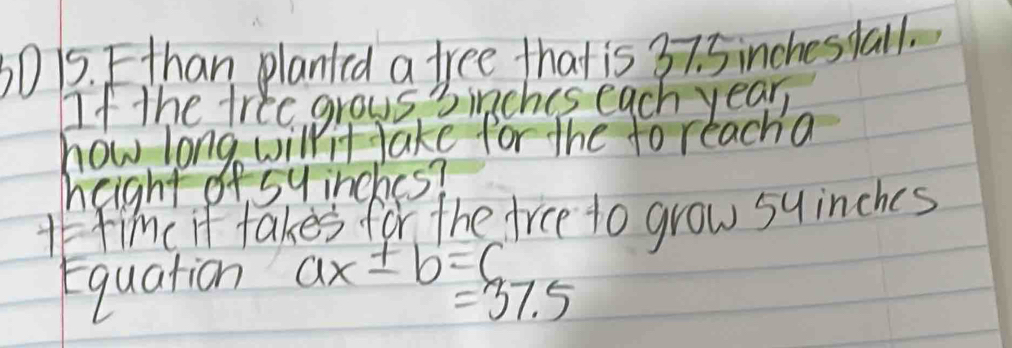 15. Ethan planted a tree that is 37.5 inches tall.
If the tree grows 3 inches each year,
how long will it take for the to reach a
height of 54 inches?
t= time it takes for the tree to grow 54 inches
Equation ax ± b = C
= 37.5